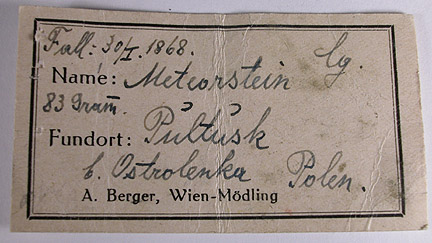 Fall: 30/I. 1868.
Name: Meteorstein Cg.
83 Gram.
Fundort: Pultusk
b. Ostrolenka Polen.
A. Berger, Wien-Mödling